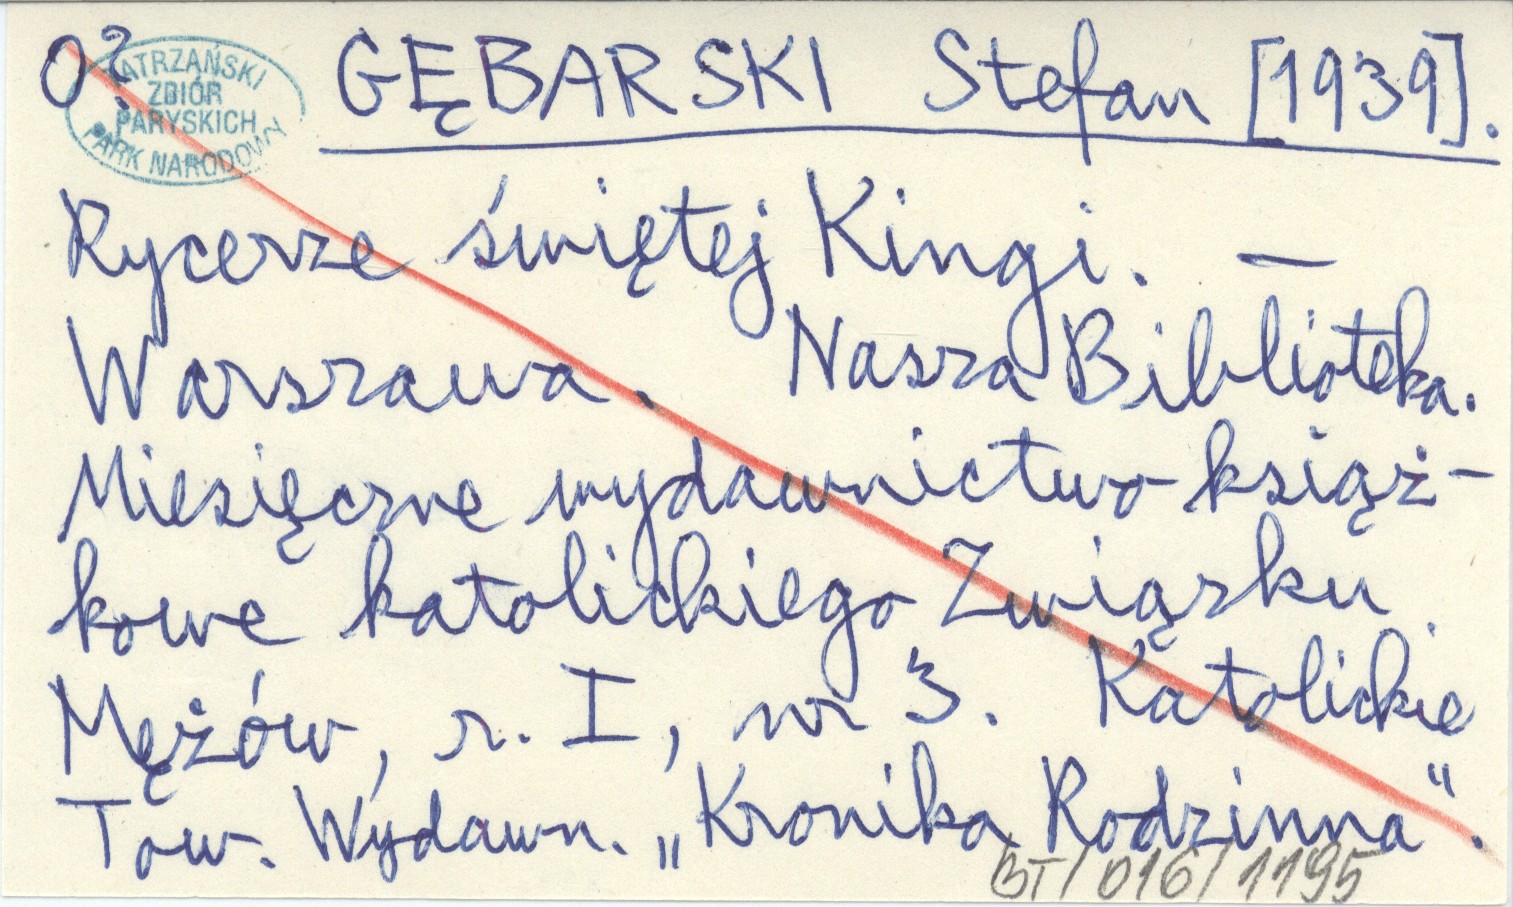 0? GĘBARSKI Stefan [1939].
TATRZAŃSKI
ZBIÓR
PARYSKICH
PARK NARODOWY
Rycerze świętej Kingi. —
Warszawa. Nasza Biblioteka.
Miesięczne wydawnictwo książ-
kowe katolickiego Związku
Mężów, r. I, nr 3. Katolickie
Tow. Wydawn. „Kronika Rodzinna".
BT/016/1195